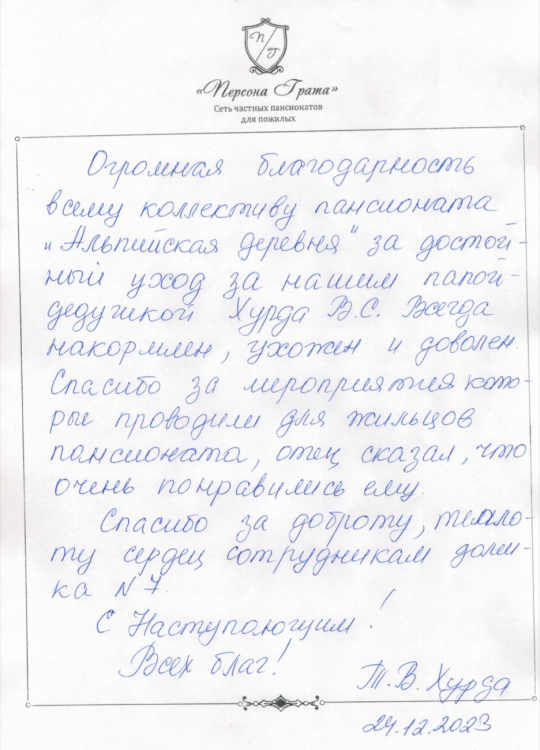 П
Г
«Персона Грата»
Сеть частных пансионатов
для пожилых
Огромная благодарность
всему коллективу пансионата
„Альпийская деревня“ за достой-
ный уход за нашим папой-
дедушкой Хурда В.С. Всегда
накормлен, ухожен и доволен.
Спасибо за мероприятия кото-
рые проводили для жильцов
пансионата, отец сказал, что
очень понравились ему.
Спасибо за доброту, тепло-
ту сердец сотрудникам доми-
ка N 7.
С Наступающим!
Всех благ!
Т.В. Хурда
24.12.2023